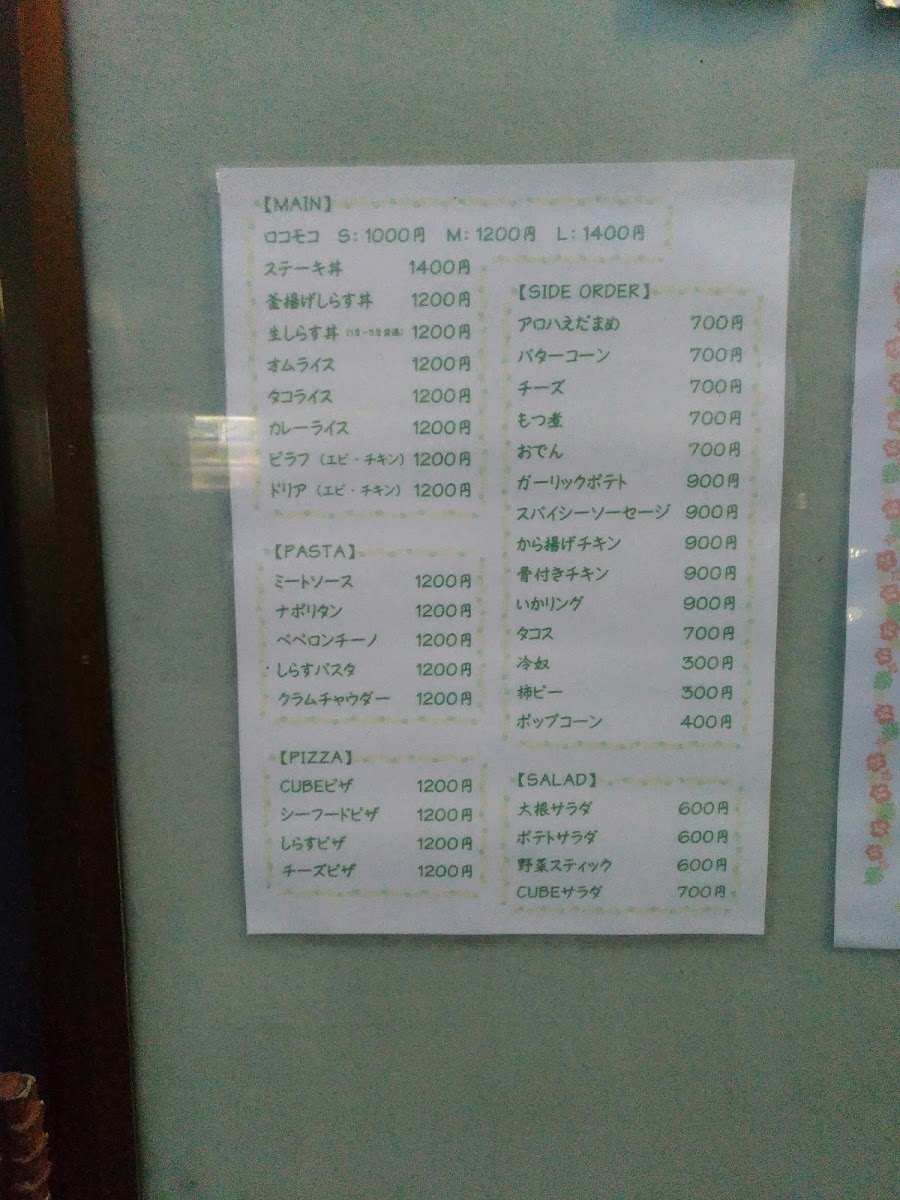 【MAIN】
ロコモコ S:1000円 M:1200円 L:1400円
ステーキ丼 1400円
釜揚げしらす丼 1200円
生しらす丼 1200円
オムライス 1200円
タコライス 1200円
カレーライス 1200円
ピラフ（エビ・チキン） 1200円
ドリア（エビ・チキン） 1200円
【PASTA】
ミートソース 1200円
ナポリタン 1200円
ペペロンチーノ 1200円
しらすパスタ 1200円
クラムチャウダー 1200円
【PIZZA】
CUBEピザ 1200円
シーフードピザ 1200円
しらすピザ 1200円
チーズピザ 1200円
【SIDE ORDER】
アロハえだまめ 700円
バターコーン 700円
チーズ 700円
もつ煮 700円
おでん 700円
ガーリックポテト 900円
スパイシーソーセージ 900円
から揚げチキン 900円
骨付きチキン 900円
いかリング 900円
タコス 700円
冷奴 300円
柿ピー 300円
ポップコーン 400円
【SALAD】
大根サラダ 600円
ポテトサラダ 600円
野菜スティック 600円
CUBEサラダ 700円